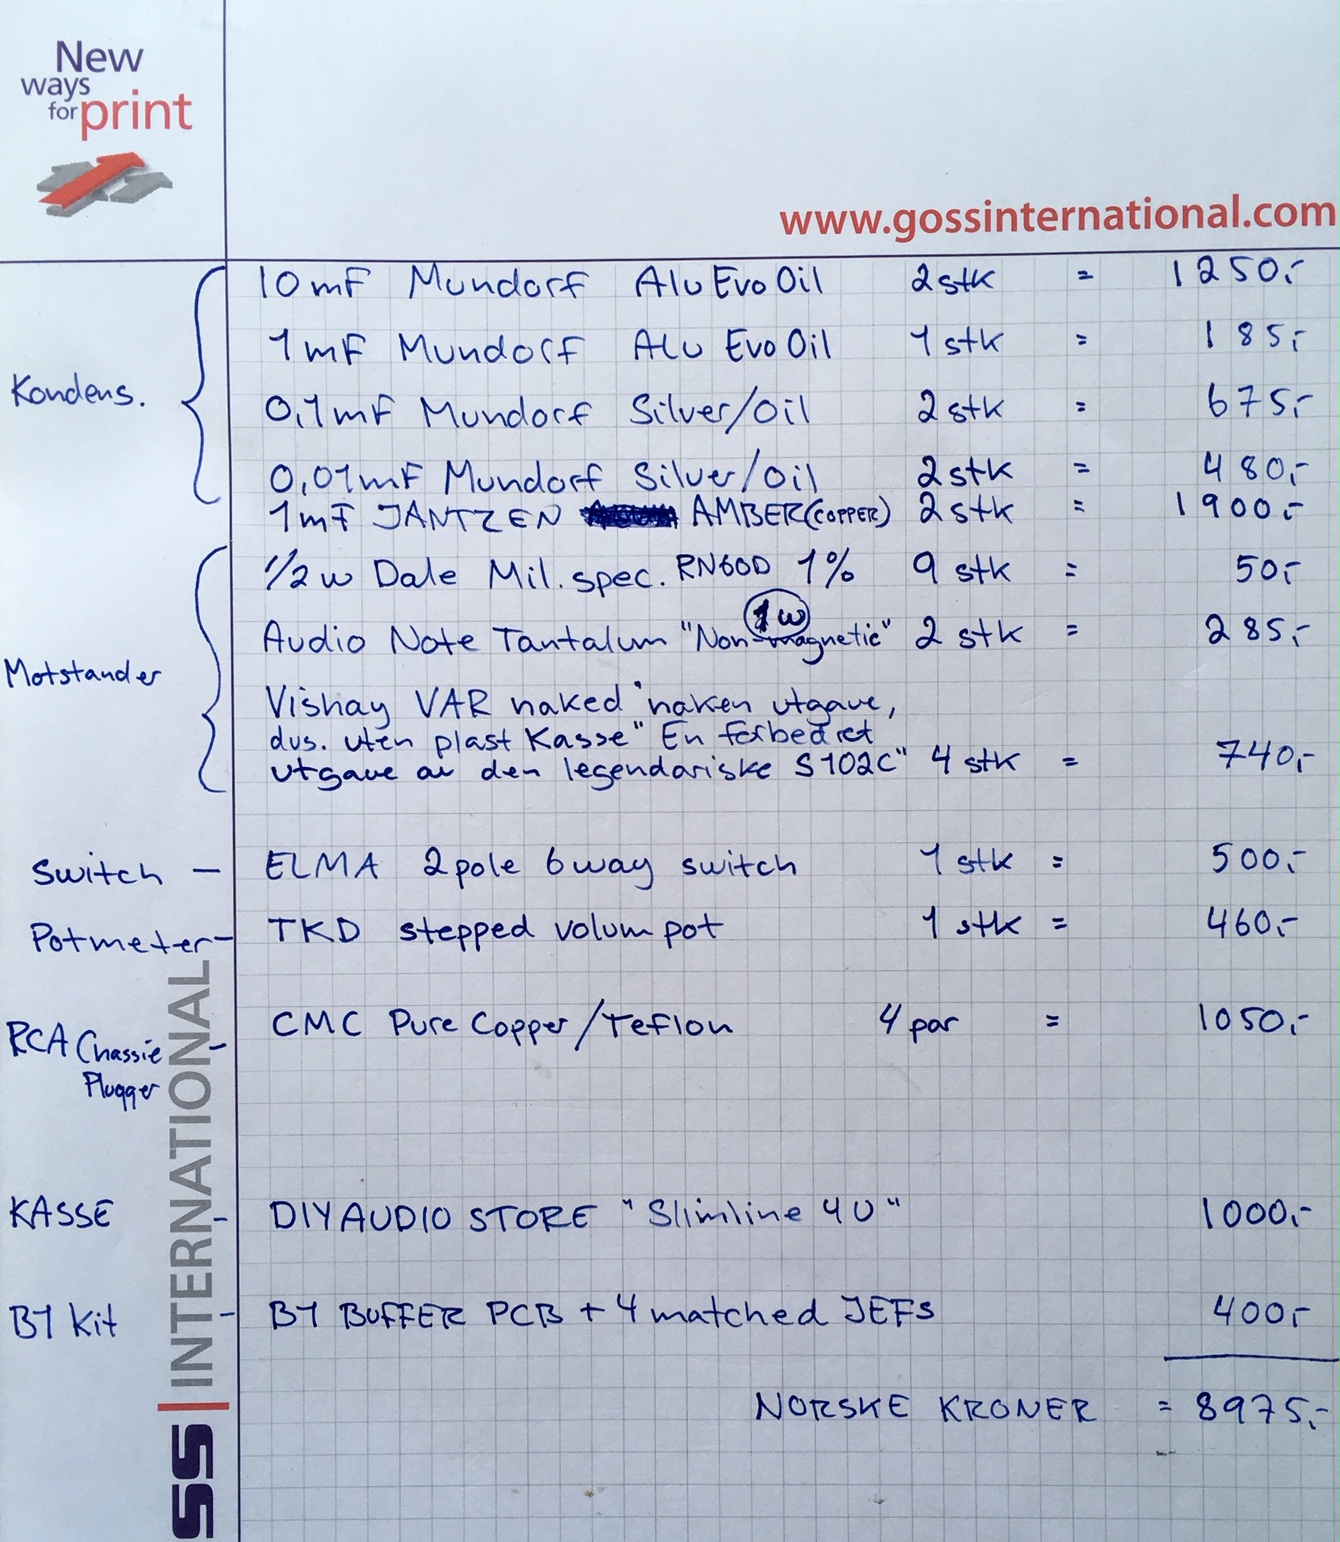 New
ways
for print
www.gossinternational.com
10mF Mundorf Alu Evo Oil 2stk = 1250,-
1mF Mundorf Alu Evo Oil 1stk = 185,-
Kondens.
0,1mF Mundorf Silver/Oil 2stk = 675,-
0,01mF Mundorf Silver/Oil 2stk = 480,-
1mF JANTZEN AMBER(COPPER) 2stk = 1900,-
1/2w Dale Mil.spec. RN60D 1% 9 stk = 50,-
1w
Audio Note Tantalum "Non-magnetic" 2 stk = 285,-
Motstander
Vishay VAR naked "naken utgave,
dvs. uten plast Kasse" En forbedret
utgave av den legendariske S102C" 4 stk = 740,-
Switch - ELMA 2pole 6way switch 1 stk = 500,-
Potmeter - TKD stepped volum pot 1 stk = 460,-
RCA Chassie - CMC Pure Copper/Teflon 4 par = 1050,-
Plugger
KASSE - DIYAUDIO STORE "Slimline 4U" 1000,-
B1 Kit - B1 BUFFER PCB + 4 matched JEFS 400,-
NORSKE KRONER = 8975,-
SS | INTERNATIONAL